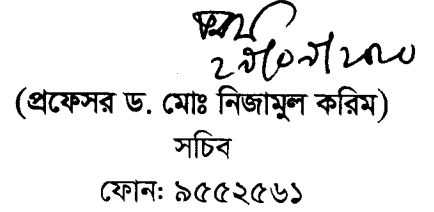 (প্রফেসর ড. মোঃ নিজামুল করিম)
সচিব
ফোন: ৯৫৫২৫৬১